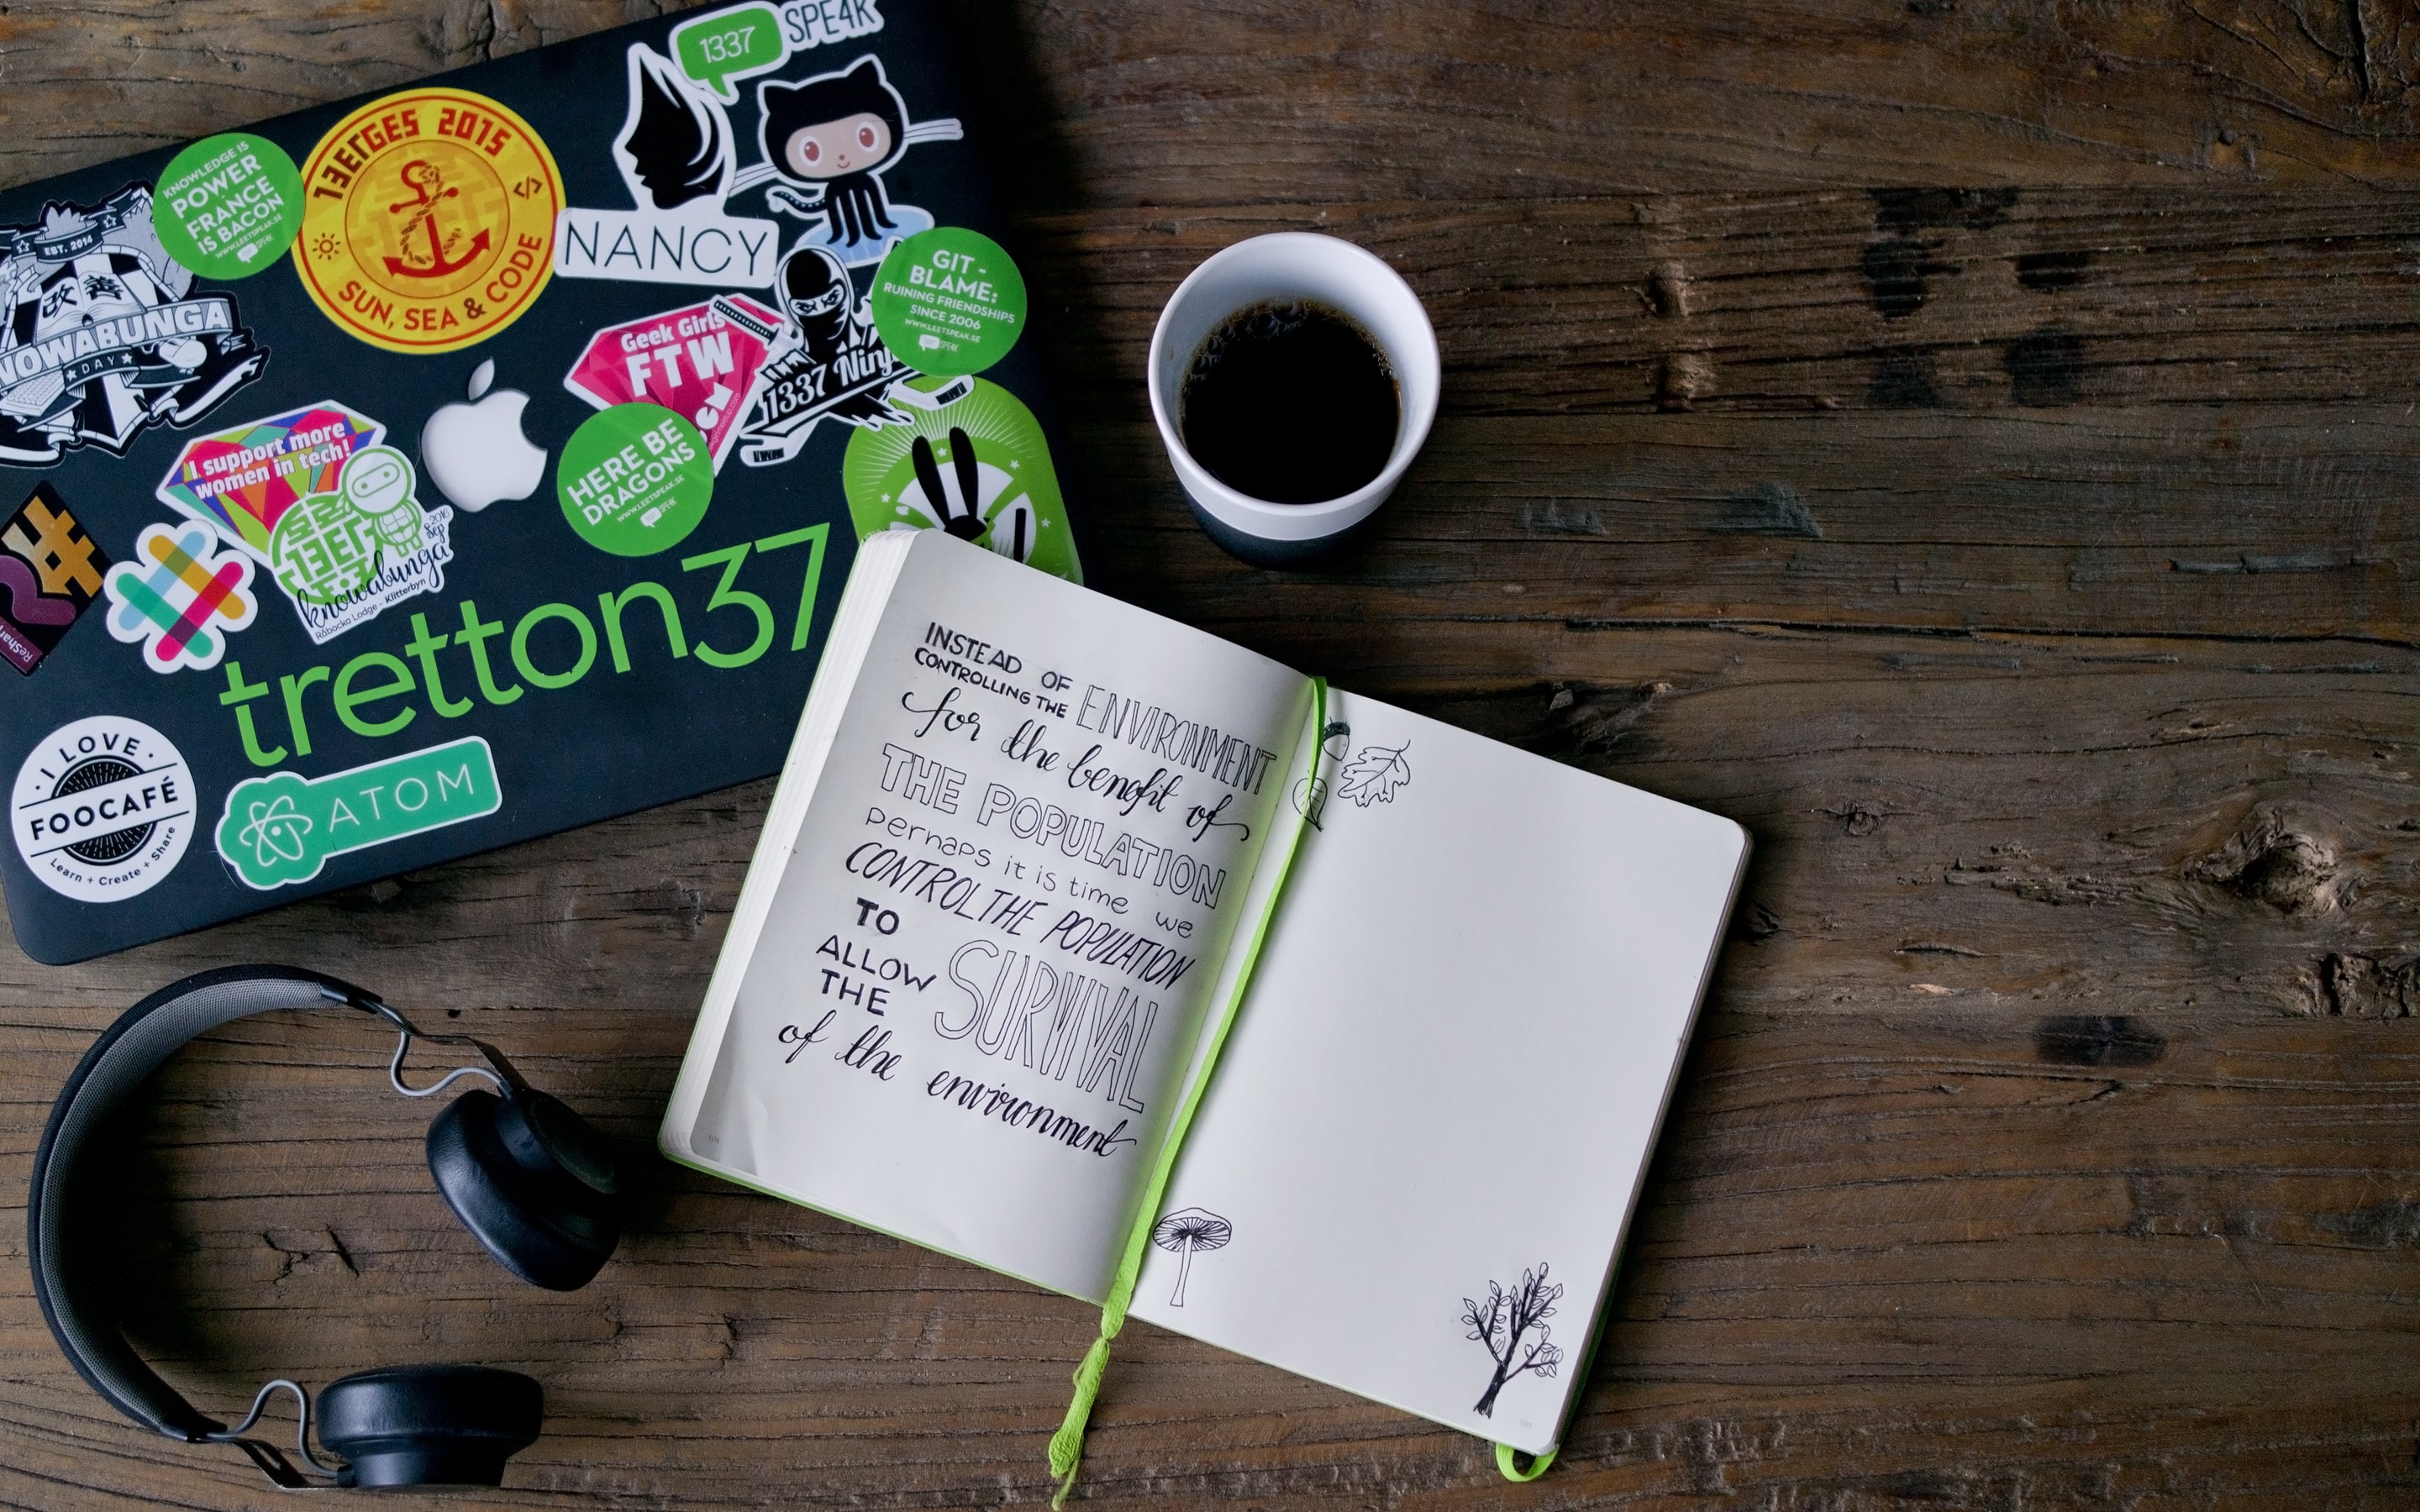 1337
SPE4K
13ERGES 2015
SUN, SEA & CODE
KNOWLEDGE IS
POWER
FRANCE
IS BACON
WWW.LEETSPEAK.SE
EST. 2014
改善
NOWABUNGA
DAY
NANCY
GIT -
BLAME:
RUINING FRIENDSHIPS
SINCE 2006
WWW.LEETSPEAK.SE
Geek Girls
FTW
1337 Ninj
I support more
women in tech!
HERE BE
DRAGONS
WWW.LEETSPEAK.SE
2016
Sep
knowabunga
Röbocka Lodge - Klitterbyn
R#
ReShar
tretton37
I LOVE
FOOCAFÉ
Learn + Create + Share
ATOM
INSTEAD OF
CONTROLLING THE ENVIRONMENT
for the benefit of
THE POPULATION
perhaps it is time we
CONTROL THE POPULATION
TO
ALLOW
THE SURVIVAL
of the environment
104